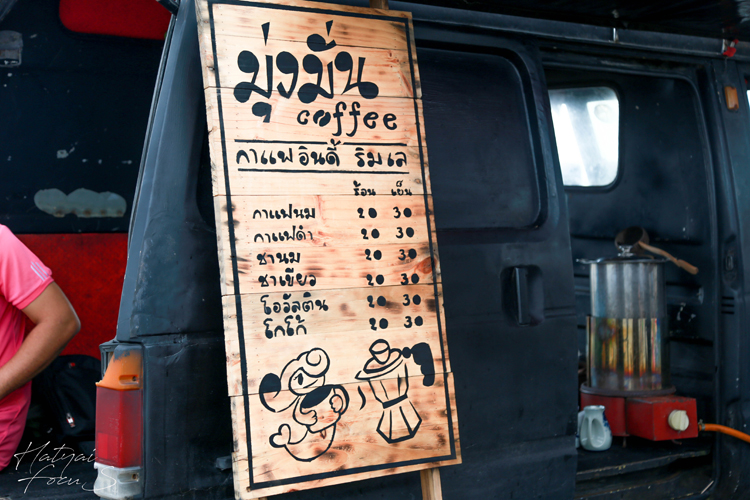 มุ่งมั่น
coffee
กาแฟอินดี้ ริมเล
ร้อน เย็น
กาแฟนม 20 30
กาแฟดำ 20 30
ชานม 20 30
ชาเขียว 20 30
โอวัลติน 20 30
โกโก้ 20 30
Hatyai
Focus